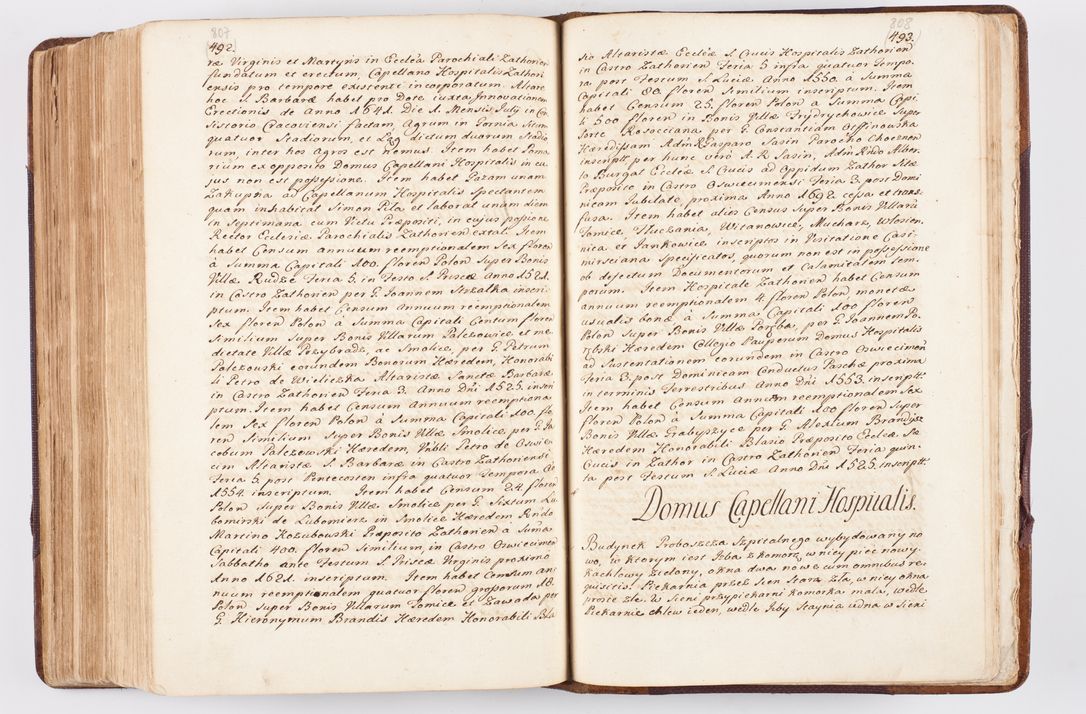 807
492.
ræ Virginis et Martyris in Ecclėa Parochiali Zathorien
fundatum et erectum, Capellano Hospitalis Zathori
ensis pro tempore existenti incorporatum. Altare
hoc S. Barbaræ habet pro Dote iuxta Innovationem
Erectionis de Anno 1641. Die 1. Mensis July in Con
sistorio Cracoviensi factam Agrum in Gornia Situm
quatuor Stadiorum, et Łęg dictum duarum Stadio
rum, inter hos Agros est Nemus. Item habet Poma
rium ex opposito Domus Capellani Hospitalis in cu
jus non est possessione. Item habet Łazam unam
Zakupna ad Capellanum Hospitalis Spectantem
quam inhabitat Simon Pila et laborat unam diem
in Septimana cum Victu Præpositi, in cujus possione
Rector Ecclesiæ Parochialis Zathorien extat. Item
habet Censum annuum reemptionalem Sex floren
à Summa Capitali 100. floren Polon Super Bonis
Villæ Rudze Feria 5. in Festo S. Priscæ Anno 1521.
in Castro Zathorien per G. Joannem Strzałka inscri
ptum. Item habet Censum Annuum reemptionalem
Sex floren Polon à Summa Capitali Centum floren
Similium Super Bonis Villarum Palczowice et me
dietate Villæ Przybradz, ac Smolice, per G. Petrum
Palczowski eorundem Bonorum Hæredem, Honorabi
li Petro de Wieliczka Altaristæ Sanctæ Barbaræ
in Castro Zathorien Feria 3. Anno Dni 1525. inscri
ptum. Item habet Censum Annuum reemptiona
lem Sex floren Polon à Summa Capitali 100. flo
ren Similium Super Bonis Villæ Smolice per G. Ja
cobum Palczowski Hæredem, Vnbli Petro de Oswien
cim Altaristæ S. Barbaræ in Castro Zathoriensi
Feria 5. post Pentecosten infra quatuor Tempora Ao
1554. inscriptum. Item habet Censum 24. floren
Polon Super Bonis Villæ Smolice per G. Sixtum Lu
bomirski de Lubomierz in Smolice Hæredem Rndo
Martino Kozubowski Præposito Zathorien à Suma
Capitali 400. floren Similium, in Castro Oswiecimen
Sabbatho ante Festum S. Priscæ Virginis proximo
Anno 1621. inscriptum. Item habet Censum an
nuum reemptionalem quatuor floren grossorum 18.
Polon Super Bonis Villarum Tomice et Zawada per
G. Hieronymum Brandis Hæredem Honorabili Bla
808
493.
sio Altaristæ Ecclėæ S. Crucis Hospitalis Zathorien
in Castro Zathorien Feria 5 infra quatuor Tempo
ra post Festum S. Luciæ Anno 1550. à Summa
Capitali 80. floren Similium inscriptum. Item
habet Censum 25. floren Polon à Summa Capi
li 500 floren in Bonis Villæ Frydrychowice Super
Sorte Rososciana per G. Constantiam Osffinowska
Hæredissam Adm R. Gasparo Sasin Parocho Choczneń
inscript per hunc verò A. R. Sasin, Adm Rndo Alber
to Burgal Ecclėæ S. Crucis ad Oppidum Zathor Sitæ
Præposito in Castro Oswiecimensi Feria 3. post Domi
nicam Jubilate, proxima Anno 1692. cessa et trans
fusa. Item habet alios Census Super Bonis Villaru
Tomice, Tłuczania, Witanowice, Mucharz, Włosien
nica et Jankowice inscriptos in Visitatione Casi
mirsciana Specificatos, quorum non est in possessione
ob defectum Documentorum et Calamitatem tem
porum. Item Hospitale Zathorien habet Censum
annuum reemptionalem 4. floren Polon monetæ
usualis bonæ à Summa Capitali 100 floren
Polon Super Bonis Villæ Poręba, per G. Joannem Po
rębski Hæredem Collegio Pauperum Domus Hospitalis
ad Sustentationem eorundem in Castro Oswiecimen
Feria 3. post Dominicam Conductus Paschæ proxima
in terminis Terrestribus Anno Dni 1553. inscript.
Item habet Censum Annuum reemptionalem Sex
floren Polon à Summa Capitali 100 floren Super
Bonis Villæ Grabyszyce per G. Alexium Brandysz
Hæredem Honorabili Blasio Præposito Ecclėæ, Sæ
Crucis in Zathor in Castro Zathorien Feria quin
ta post Festum S. Luciæ Anno Dni 1525. inscript.
Domus Capellani Hospitalis.
Budynek Proboszcza Szpitalnego wybydowany no
wo, w ktorym iest Izba z komorą, w niey piec nowy
kachlowy zielony, okna dwa nowe cum omnibus re
quisitis. Piekarnia przez Sien Stara zła, w niey okna
proste złe. w Sieni przypiekarni komorka mała, wedle
Piekarnie chlew ieden, wedle Izby Staynia iedna w Sieni